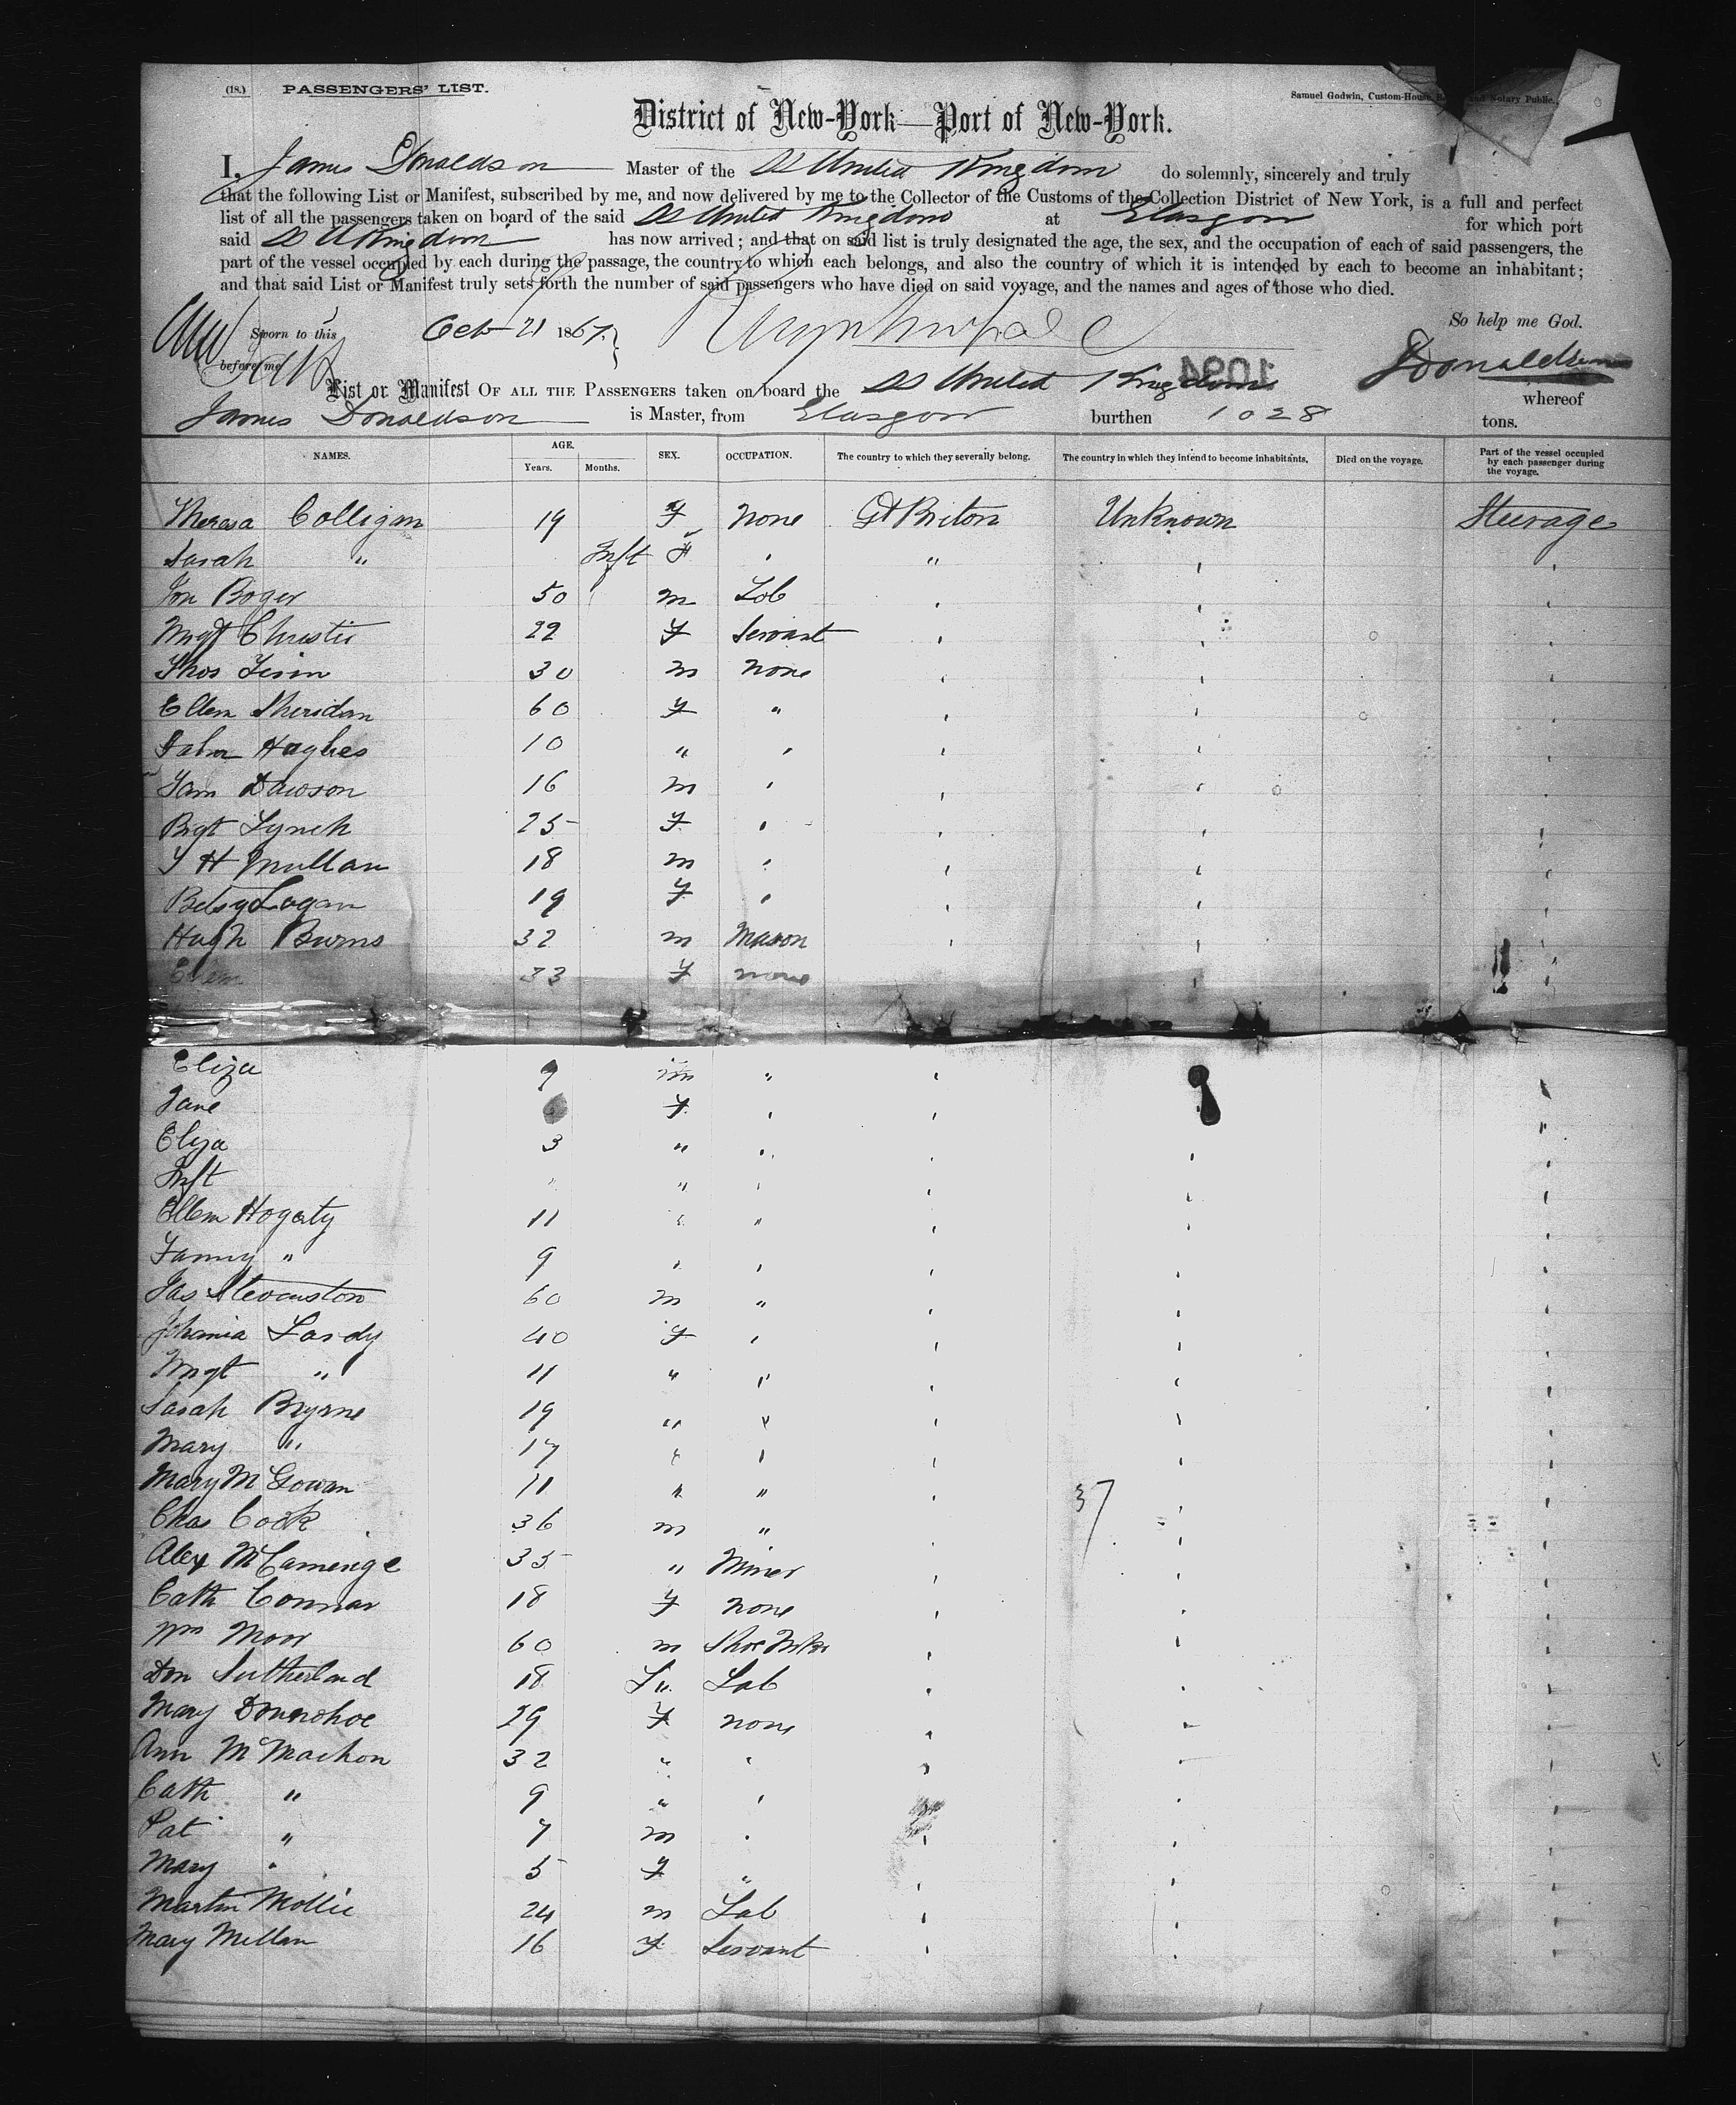 (18.) PASSENGERS' LIST.
Samuel Godwin, Custom-House, and Notary Public.
District of New-York—Port of New-York.
I, James Donaldson Master of the SS United Kingdom do solemnly, sincerely and truly
that the following List or Manifest, subscribed by me, and now delivered by me to the Collector of the Customs of the Collection District of New York, is a full and perfect
list of all the passengers taken on board of the said SS United Kingdom at Glasgow for which port
said SS U Kingdom has now arrived; and that on said list is truly designated the age, the sex, and the occupation of each of said passengers, the
part of the vessel occupied by each during the passage, the country to which each belongs, and also the country of which it is intended by each to become an inhabitant;
and that said List or Manifest truly sets forth the number of said passengers who have died on said voyage, and the names and ages of those who died.
So help me God.
Sworn to this Oct 21 1867
before me
J Donaldson
1094
List or Manifest OF ALL THE PASSENGERS taken on board the SS United Kingdom whereof
James Donaldson is Master, from Glasgow burthen 1028 tons.
NAMES. AGE. Years. Months. SEX. OCCUPATION. The country to which they severally belong. The country in which they intend to become inhabitants. Died on the voyage. Part of the vessel occupied by each passenger during the voyage.
Theresa Colligan 19 F None Gt Briton Unknown Steerage
Sarah " Inft F " " " "
Jon Boger 50 m Lab " " "
Mrgt Christie 22 F Servant " " "
Thos 30 m None " " "
Ellen Sheridan 60 F " " " "
Hughes 10 " " " " "
Dawson 16 m " " " "
Bgt Lynch 25 F " " " "
J H Mullan 18 m " " " "
Betsy Logan 19 F " " " "
Hugh Burns 32 m Mason " " "
Ellen 33 F none " "
Eliza 9 m " " "
Jane F " " "
Eliza 3 " " " " "
Inft " " " " " "
Ellen Hogarty 11 " " " " "
Fanny " 9 " " " " "
Jas Stevenston 60 m " " " "
Johania Lardy 40 F " " " "
Mrgt " 11 " " " " "
Sarah Bryrne 19 " " " " "
Mary " 17 " " " " "
Mary McGowan 11 " " " " "
Chas Cook 36 m " " 37 " "
Alex McCamenge 35 " Miner " " "
Cath Connar 18 F none " " "
Wm Moor 60 m Shoe Mkr " " "
Don Sutherland 18 " Lab " " "
Mary Donohoe 29 F none " " "
Ann McMachon 32 " " " " "
Cath " 9 " " " " "
Pat " 7 m " " " "
Mary " 5 F " " " "
Martin Mollie 24 m Lab " " "
Mary Mellan 16 F Servant " " "